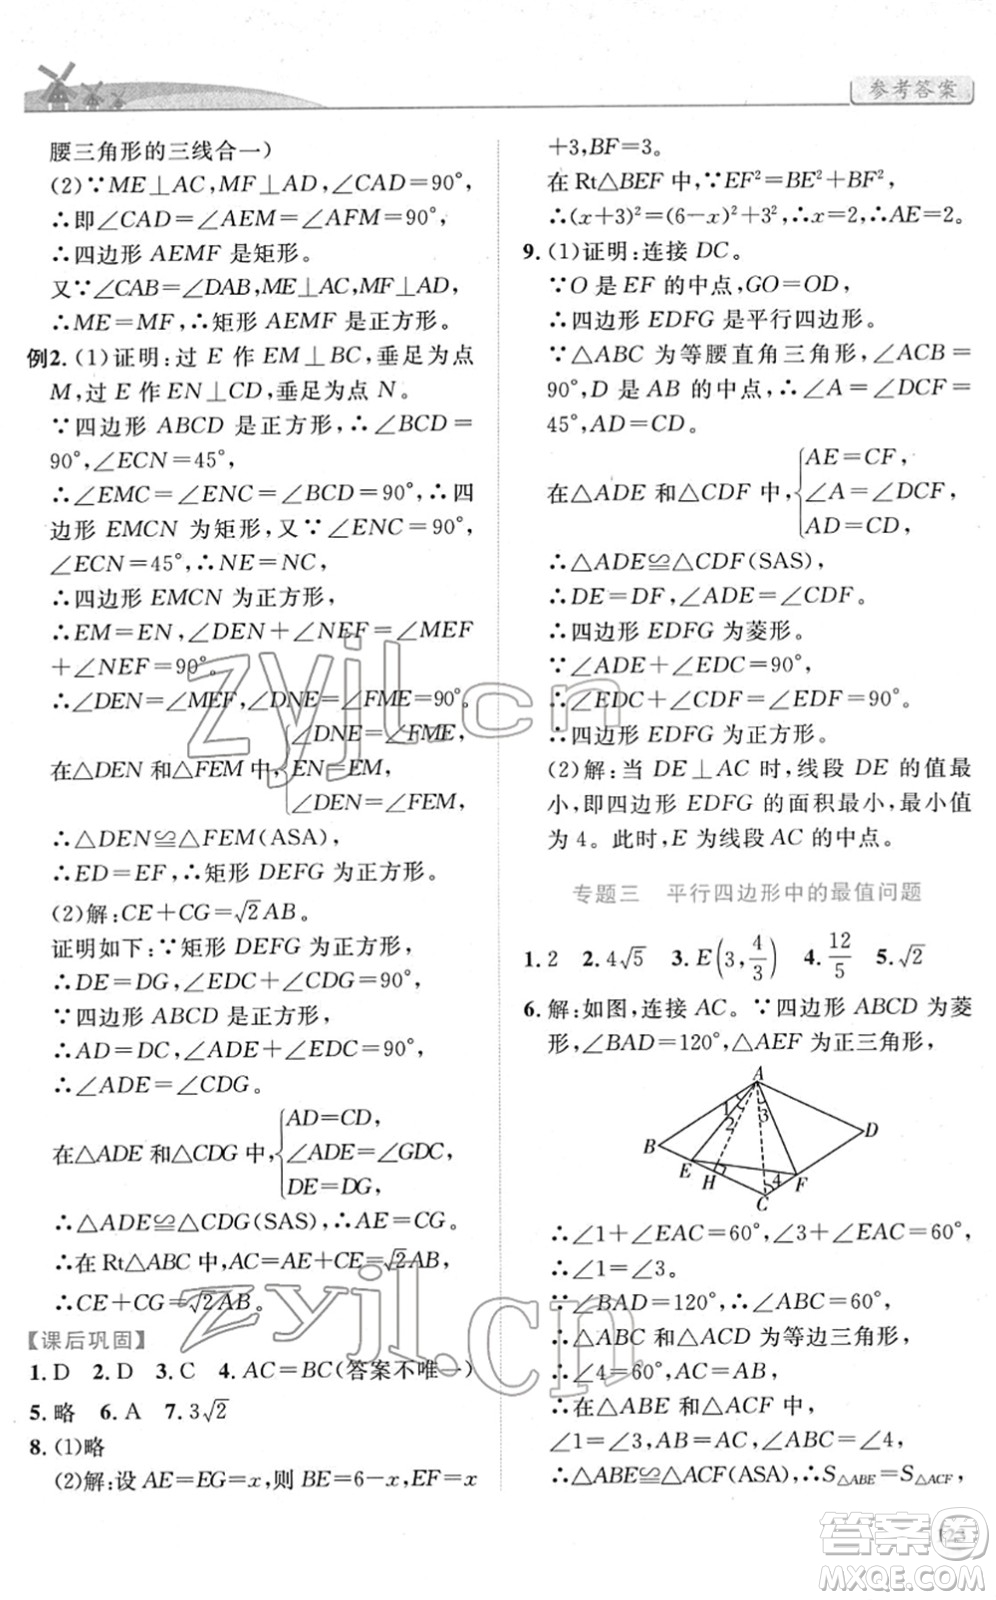 参考答案
腰三角形的三线合一)
(2)∵ME⊥AC,MF⊥AD,∠CAD=90°,
∴即∠CAD=∠AEM=∠AFM=90°,
∴四边形 AEMF 是矩形。
又∵∠CAB=∠DAB,ME⊥AC,MF⊥AD,
∴ME=MF,∴矩形 AEMF 是正方形。
例2. (1)证明:过 E 作 EM⊥BC,垂足为点
M,过 E 作 EN⊥CD,垂足为点 N。
∵四边形 ABCD 是正方形,∴∠BCD=
90°,∠ECN=45°,
∴∠EMC=∠ENC=∠BCD=90°,∴四
边形 EMCN 为矩形,又∵∠ENC=90°,
∠ECN=45°,∴NE=NC,
∴四边形 EMCN 为正方形,
∴EM=EN,∠DEN+∠NEF=∠MEF
+∠NEF=90°。
∴∠DEN=∠MEF,∠DNE=∠FME=90°。
在△DEN和△FEM 中,{∠DNE=∠FME,
EN=EM,
∠DEN=∠FEM,
∴△DEN≌△FEM(ASA),
∴ED=EF,∴矩形 DEFG 为正方形。
(2)解:CE+CG=√2AB。
证明如下:∵矩形 DEFG 为正方形,
∴DE=DG,∠EDC+∠CDG=90°,
∵四边形 ABCD 是正方形,
∴AD=DC,∠ADE+∠EDC=90°,
∴∠ADE=∠CDG。
在△ADE 和△CDG 中,{AD=CD,
∠ADE=∠CDG,
DE=DG,
∴△ADE≌△CDG(SAS),∴AE=CG。
∴在 Rt△ABC 中,AC=AE+CE=√2AB,
∴CE+CG=√2AB。
【课后巩固】
1. D 2. D 3. C 4. AC=BC(答案不唯一)
5. 略 6. A 7. 3√2
8. (1)略
(2)解:设 AE=EG=x,则 BE=6-x,EF=x
+3,BF=3。
在 Rt△BEF 中,∵EF²=BE²+BF²,
∴(x+3)²=(6-x)²+3²,∴x=2,∴AE=2。
9. (1)证明:连接 DC。
∵O 是 EF 的中点,GO=OD,
∴四边形 EDFG 是平行四边形。
∵△ABC 为等腰直角三角形,∠ACB=
90°,D 是 AB 的中点,∴∠A=∠DCF=
45°,AD=CD。
在△ADE 和△CDF 中,{AE=CF,
∠A=∠DCF,
AD=CD,
∴△ADE≌△CDF(SAS),
∴DE=DF,∠ADE=∠CDF。
∴四边形 EDFG 为菱形。
∵∠ADE+∠EDC=90°,
∴∠EDC+∠CDF=∠EDF=90°。
∴四边形 EDFG 为正方形。
(2)解:当 DE⊥AC 时,线段 DE 的值最
小,即四边形 EDFG 的面积最小,最小值
为 4。此时,E 为线段 AC 的中点。
专题三 平行四边形中的最值问题
1. 2 2. 4√5 3. E(3,4/3) 4. 12/5 5. √2
6. 解:如图,连接 AC。∵四边形 ABCD 为菱
形,∠BAD=120°,△AEF 为正三角形,
A
1
2
3
B
D
E
H
4
F
C
∴∠1+∠EAC=60°,∠3+∠EAC=60°,
∴∠1=∠3。
∵∠BAD=120°,∴∠ABC=60°,
∴△ABC 和△ACD 为等边三角形,
∴∠4=60°,AC=AB。
∴在△ABE 和△ACF 中,
∠1=∠3,AB=AC,∠ABC=∠4
∴△ABE≌△ACF(ASA),∴S△ABE=S△ACF,
zyjl.cn
zyjl.cn
答案圈
MXQE.COM